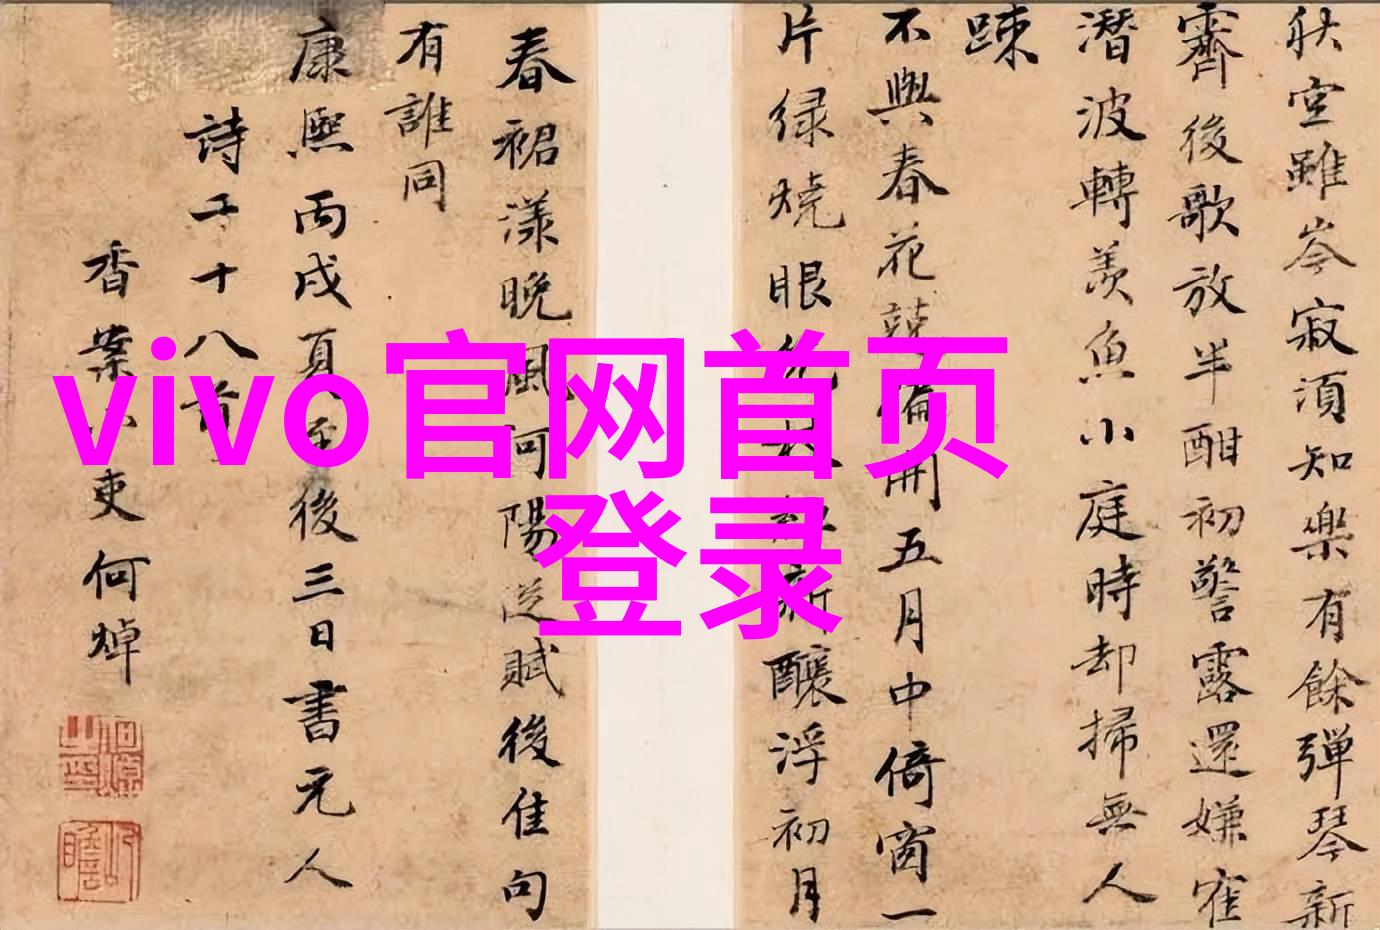 秋空雖岑寂須知樂有餘彈琴新
霽後歌放半酣初警露還嫌窄
潛波轉羨魚小庭時却掃無人
踈
不與春花競開五月中倚窗一
片緑燒眼新釀浮初月
春裙漾晚風河陽從賦後佳句
有誰同
康熙丙戌夏至後三日書元人
詩二十八首
香案小吏何焯
vivo官网首页
登录